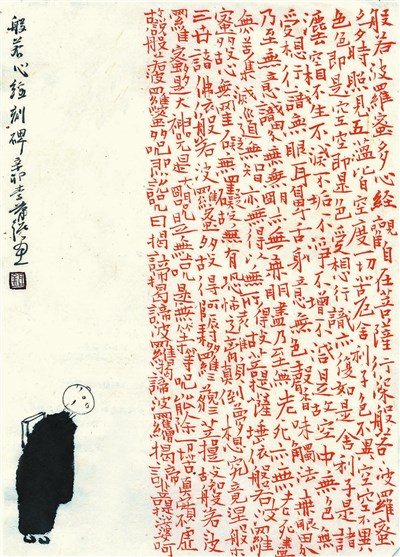 般若波羅蜜多心經觀自在菩薩行深般若波羅蜜
多時照見五蘊皆空度一切苦厄舍利子色不異空空不異
色色即是空空即是色受想行識亦復如是舍利子是諸
法空相不生不滅不垢不淨不增不減是故空中無色無
受想行識無眼耳鼻舌身意無色聲香味觸法無眼界
乃至無意識界無無明亦無無明盡乃至無老死亦無老死盡
無苦集滅道無智亦無得以無所得故菩提薩埵依般若波羅
蜜多故心無罣礙無罣礙故無有恐怖遠離顛倒夢想究竟涅槃
三世諸佛依般若波羅蜜多故得阿耨多羅三藐三菩提故知般若波
羅蜜多是大神咒是大明咒是無上咒是無等等咒能除一切苦真實不虛
故說般若波羅蜜多咒即說咒曰揭諦揭諦波羅揭諦波羅僧揭諦菩提薩婆訶
般若心經刻碑 辛卯李蕭錕畫